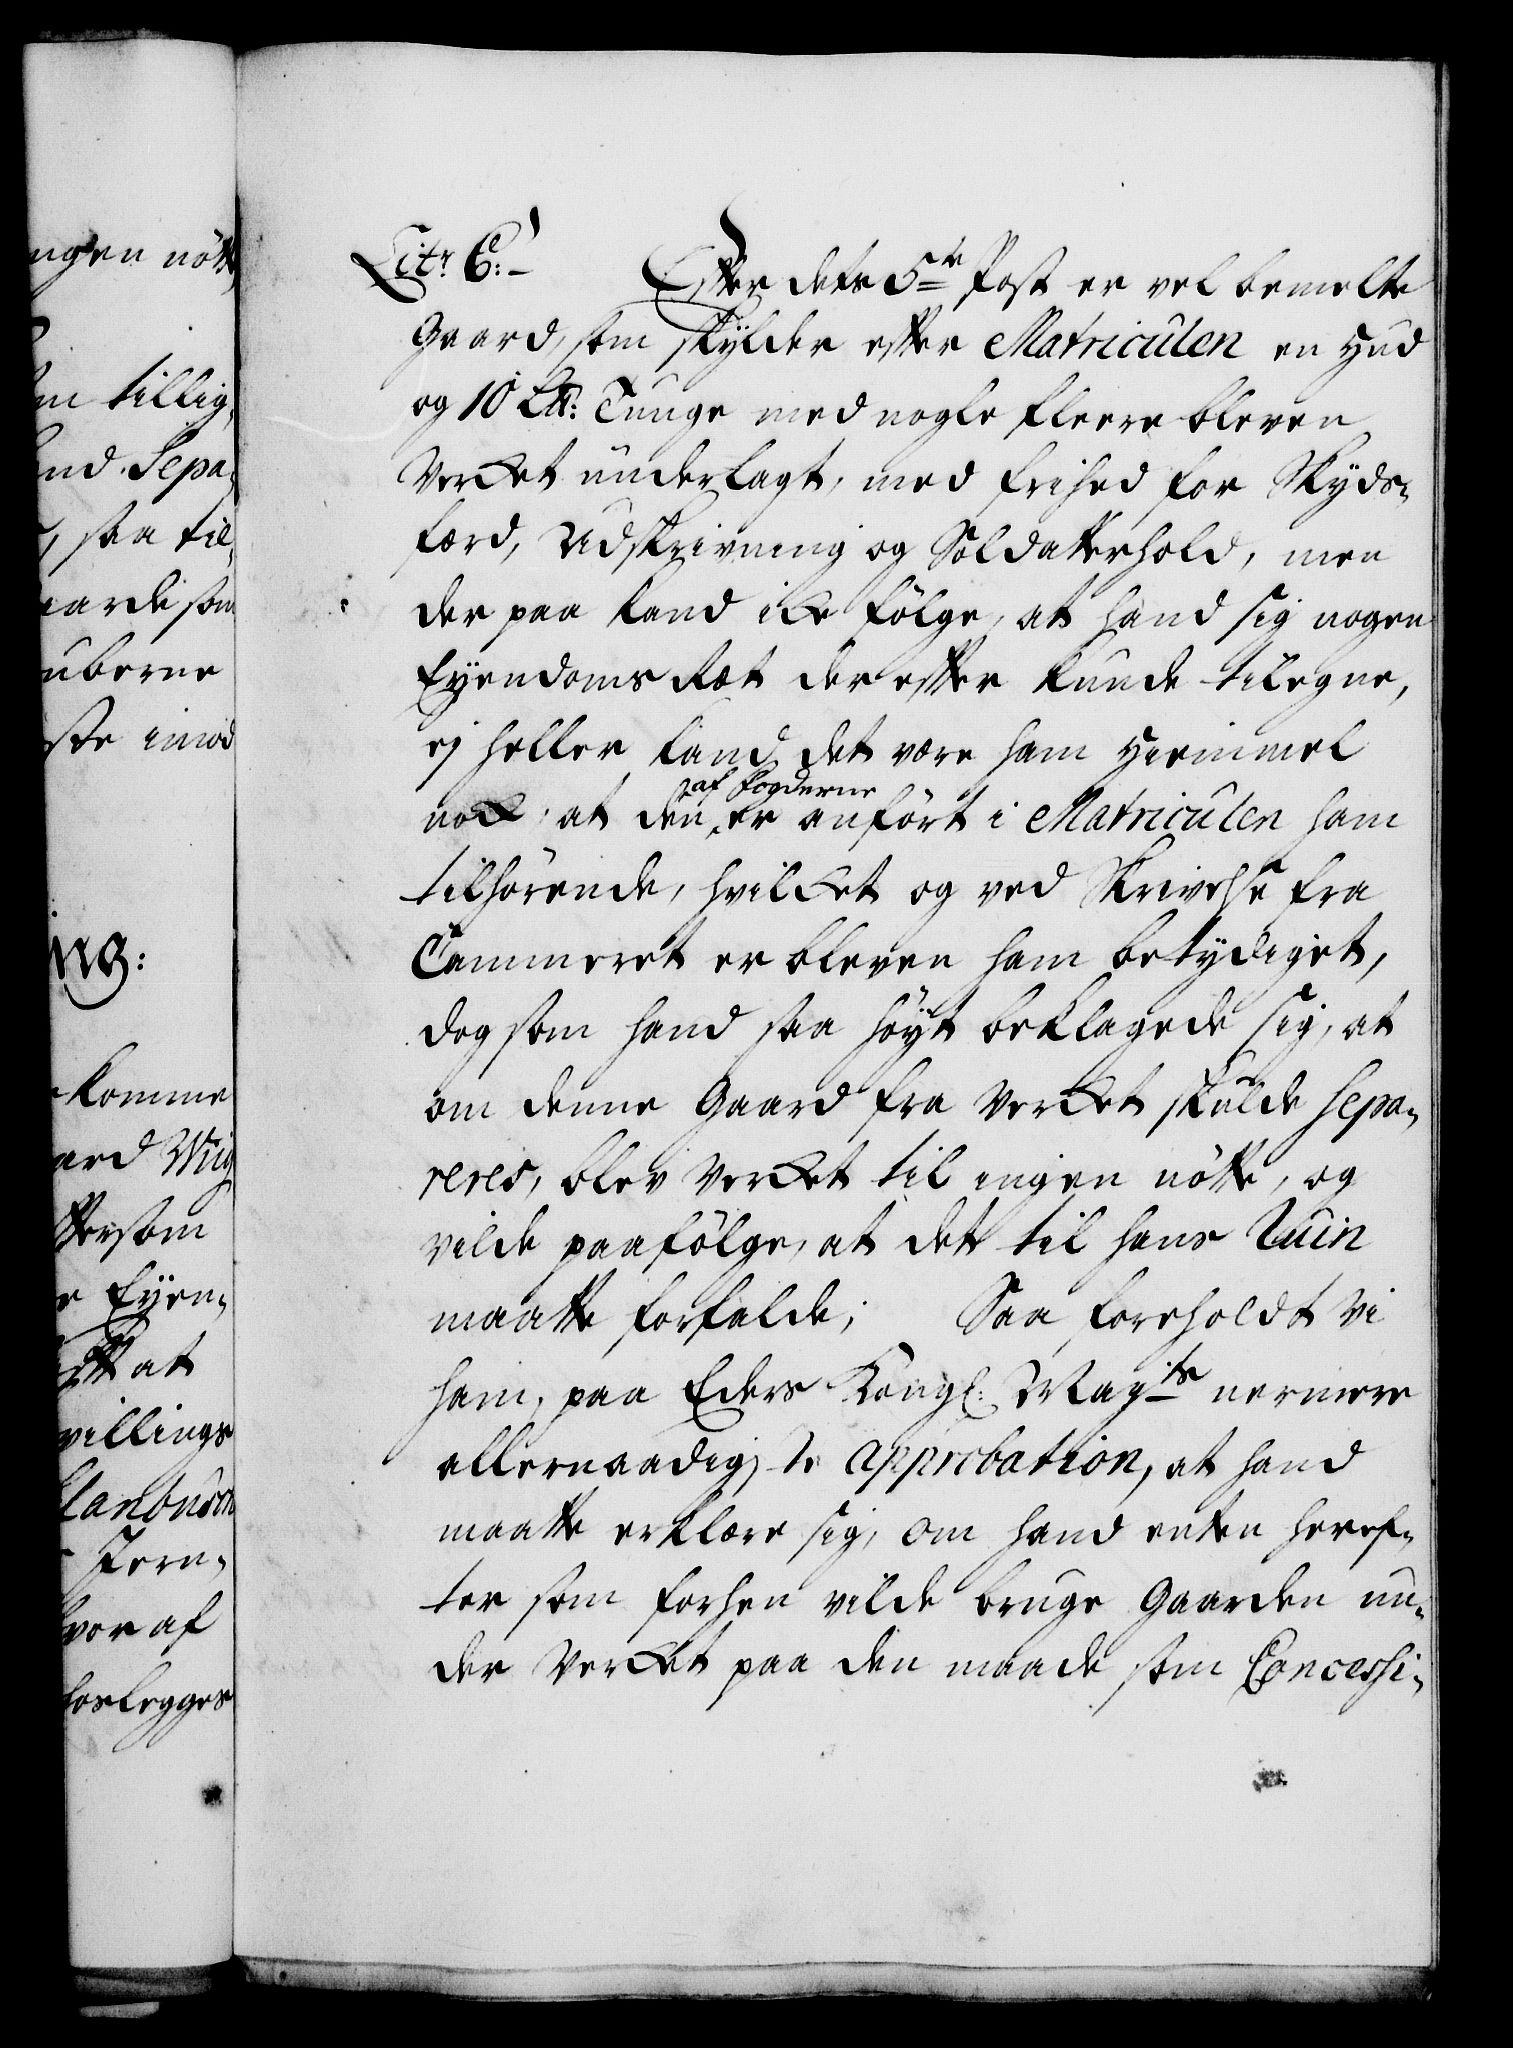 ngen nötte
m tillig,
end Sepa-
, saa til
aarde som
uberne
ste imod
ng:
komme
ard Wiig
ttersom
e Eyen-
at
villings
Jern-
hvor af
forlegges
Litr E:
Efter dets 5te Post er vel bemelte
Gaard, som skylder efter Matriculen en Hud
og 10 Lb: Tunge med nogle fleere bleven
Verket underlagt, med frihed for Skyds-
færd, Udskrivning og Soldatterhold, men
der paa kand ike følge, at hand sig nogen
Eyendoms Ræt der efter kunde tilegne,
ej heller kand det være ham Hiemmel
af Fogderne
nok at den er anført i Matriculen ham
tilhörende, hvilket og ved Skrivelse fra
Cammeret er bleven ham betydiget,
dog som hand saa höyt beklagede sig, at
om denne Gaard fra Verket skulde sepa-
reres, blev Verket til ingen nötte, og
vilde paafölge, at det til hans Ruin
maatte forfalde; Saa foreholdt vi
ham, paa Eders Kongl: Mayts nermere
allernaadigste approbation, at hand
maatte erklære sig, om hand enten heref-
ter som forhen vilde bruge Gaarden un-
der Verket paa den maade som Concessi-